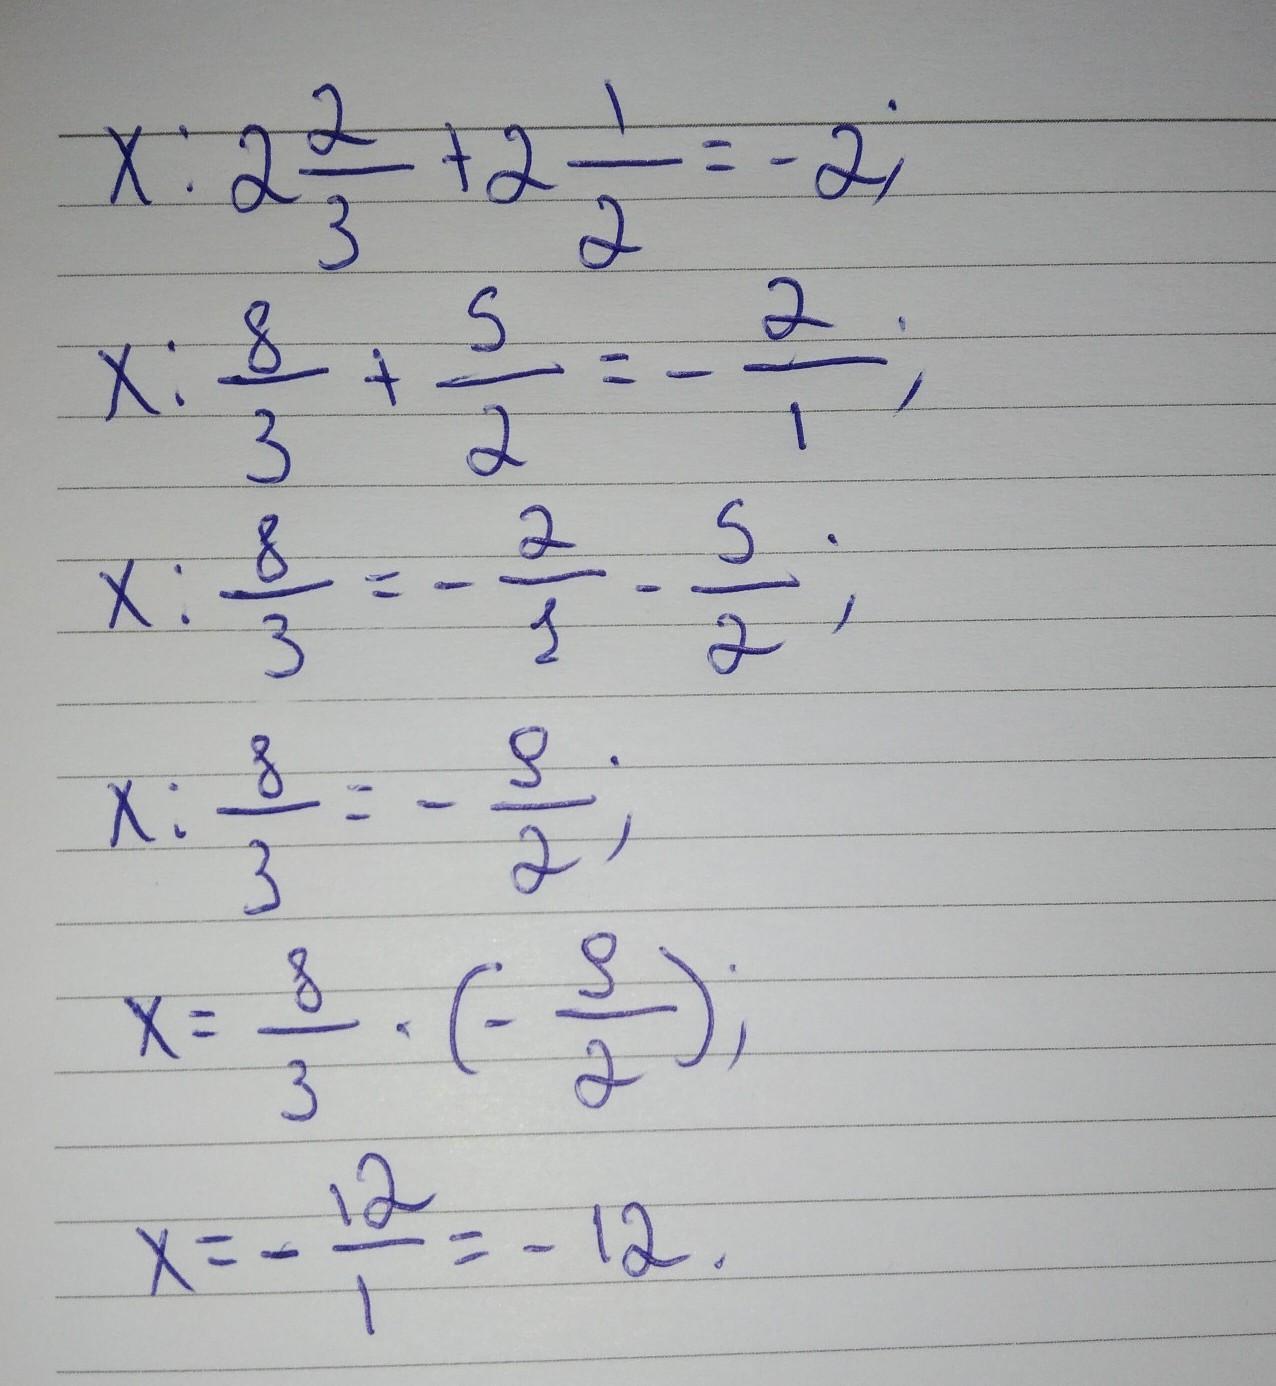 x : 2 2/3 + 2 1/2 = -2;
x : 8/3 + 5/2 = - 2/1;
x : 8/3 = - 2/1 - 5/2;
x : 8/3 = - 9/2;
x = 8/3 · (- 9/2);
x = - 12/1 = - 12.